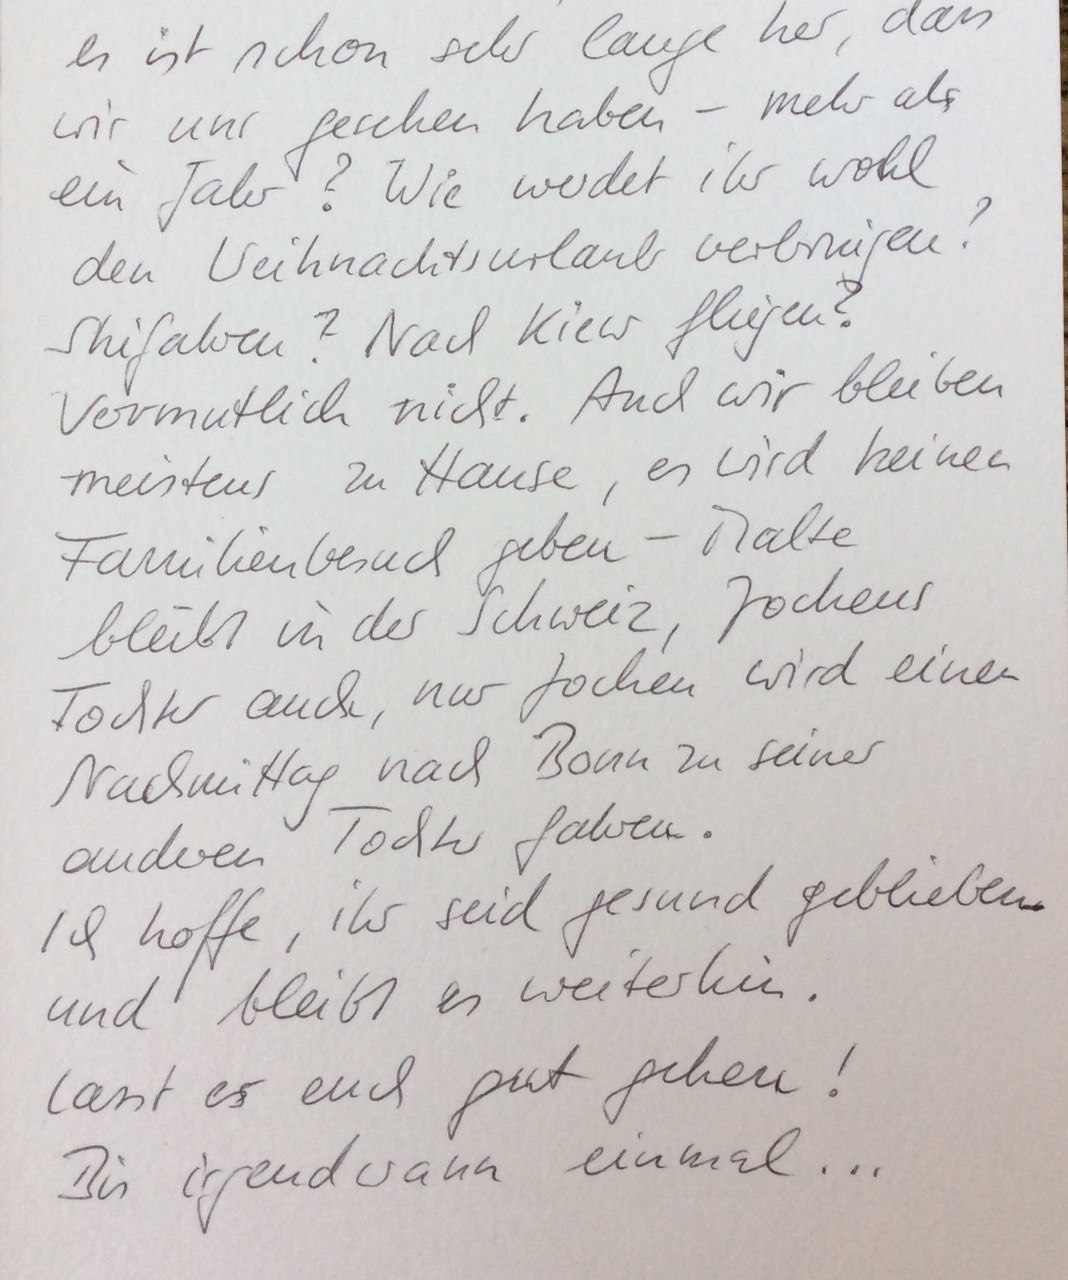 es ist schon sehr lange her, dass
wir uns gesehen haben – mehr als
ein Jahr? Wie werdet ihr wohl
den Weihnachtsurlaub verbringen?
Skifahren? Nach Kiew fliegen?
Vermutlich nicht. Auch wir bleiben
meistens zu Hause, es wird keinen
Familienbesuch geben – Malte
bleibt in der Schweiz, Jochens
Tochter auch, nur Jochen wird einen
Nachmittag nach Bonn zu seiner
anderen Tochter fahren.
Ich hoffe, ihr seid gesund geblieben
und bleibt es weiterhin.
Lasst es euch gut gehen!
Bis irgendwann einmal...